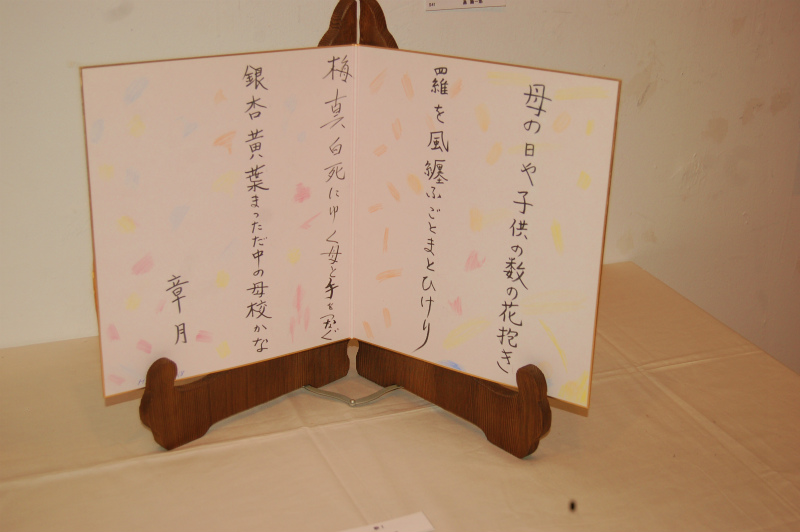 母の日や子供の数の花抱き
羅を風纏ふごとまとひけり
梅真白死にゆく母と手をつなぐ
銀杏黄葉まっただ中の母校かな
章月